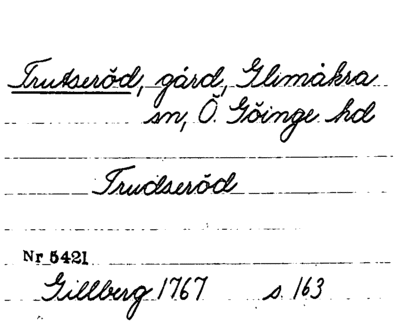 Trutseröd, gård, Glimåkra
sn, Ö. Göinge hd
Trudseröd
Nr 5421
Gillberg 1767 s 163